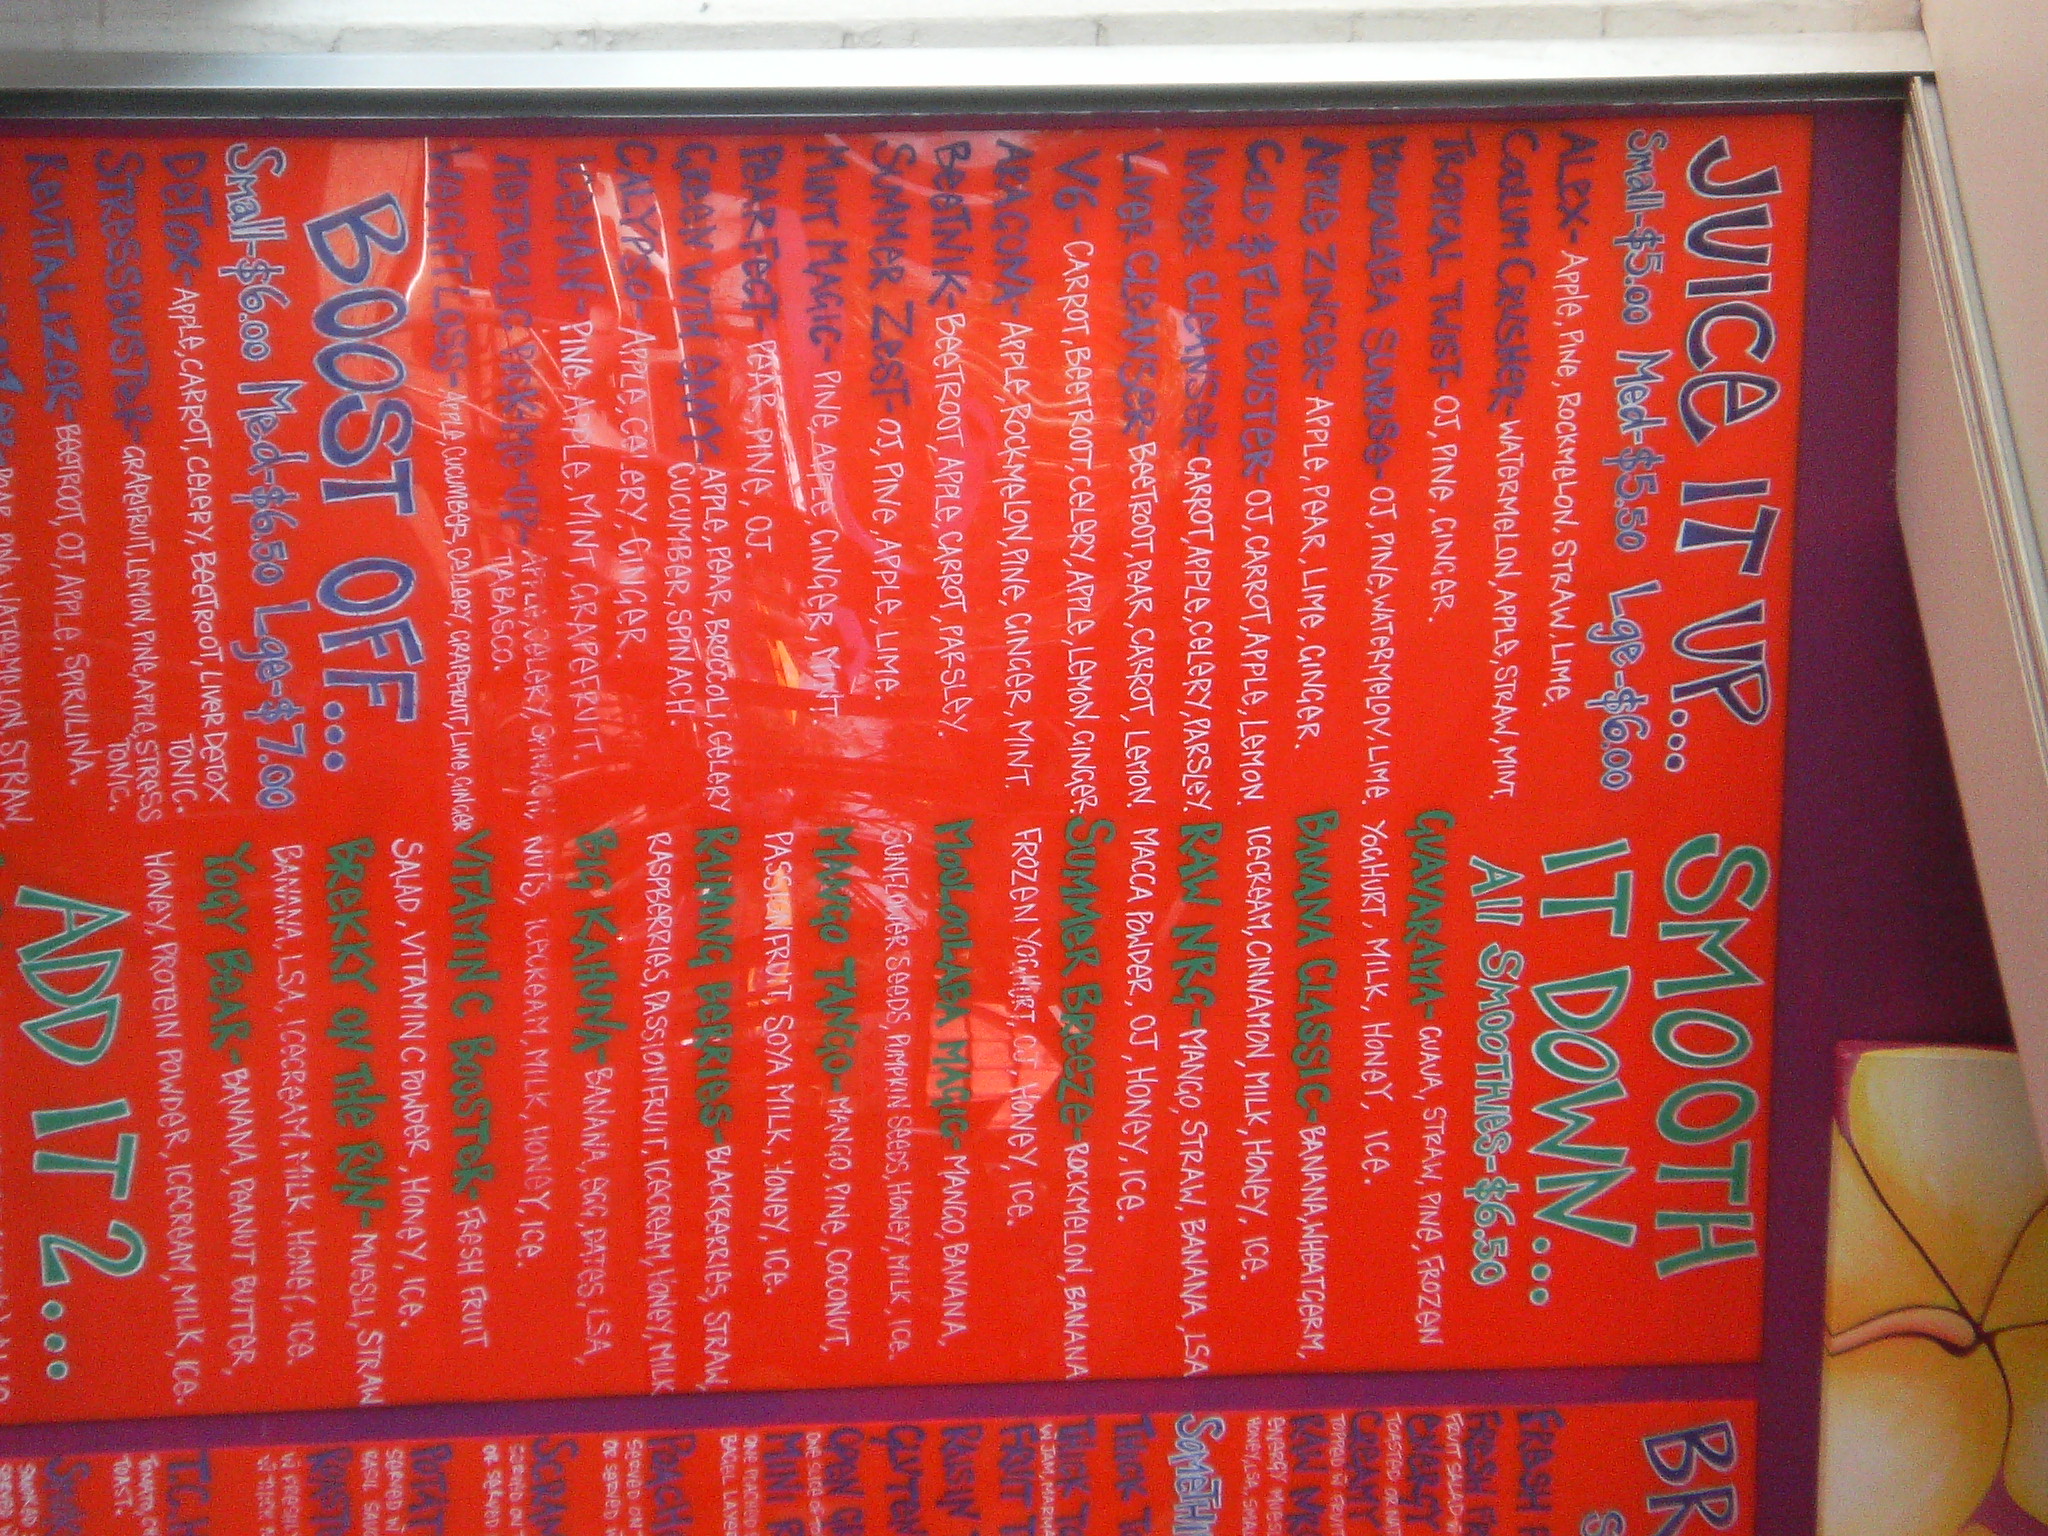 JUICE IT UP...
Small-$5.00 Med-$5.50 Lge-$6.00
ALEX- APPLE, PINE, ROCKMELON, STRAW, LIME.
COOLUM CRUSHER- WATERMELON, APPLE, STRAW, MINT.
TROPICAL TWIST- OJ, PINE, GINGER.
MOOLOOLABA SUNRISE- OJ, PINE, WATERMELON, LIME.
APPLE ZINGER- APPLE, PEAR, LIME, GINGER.
COLD & FLU BUSTER- OJ, CARROT, APPLE, LEMON.
INNER CLEANSER- CARROT, APPLE, CELERY, PARSLEY.
LIVER CLEANSER- BEETROOT, PEAR, CARROT, LEMON.
V6- CARROT, BEETROOT, CELERY, APPLE, LEMON, GINGER.
ARAGONA- APPLE, ROCKMELON, PINE, GINGER, MINT.
BEETNIK- BEETROOT, APPLE, CARROT, PARSLEY.
SUMMER ZEST- OJ, PINE, APPLE, LIME.
MINT MAGIC- PINE, APPLE, GINGER, MINT.
PEARFECT- PEAR, PINE, OJ.
GREEN WITH ENVY- APPLE, PEAR, BROCCOLI, CELERY
CUCUMBER, SPINACH.
CALYPSO- APPLE, CELERY, GINGER.
ICEMAN- PINE, APPLE, MINT, GRAPEFRUIT.
METABOLIC PICK-ME-UP- APPLE, CELERY, SPINACH,
TABASCO.
WEIGHT LOSS- APPLE, CUCUMBER, CELLERY, GRAPEFRUIT, LIME, GINGER
BOOST OFF...
Small-$6.00 Med-$6.50 Lge-$7.00
DETOX- APPLE, CARROT, CELERY, BEETROOT, LIVER DETOX
TONIC.
STRESSBUSTER- GRAPAFRUIT, LEMON, PINE, APPLE, STRESS
TONIC.
REVITALIZER- BEETROOT, OJ, APPLE, SPIRULINA.
WATERMELON, STRAW,
SMOOTH
IT DOWN...
All SMOOTHIES-$6.50
GUAVARAMA- GUAVA, STRAW, PINE, FROZEN
YOGHURT, MILK, HONEY, ICE.
BANANA CLASSIC- BANANA, WHEATGERM,
ICECREAM, CINNAMON, MILK, HONEY, ICE.
RAW NRG- MANGO, STRAW, BANANA, LSA
MACCA POWDER, OJ, HONEY, ICE.
SUMMER BREEZE- ROCKMELON, BANANA
FROZEN YOGHURT, OJ, HONEY, ICE.
MOOLOOLABA MAGIC- MANGO, BANANA,
SUNFLOWER SEEDS, PUMPKIN SEEDS, HONEY, MILK, ICE.
MANGO TANGO- MANGO, PINE, COCONUT,
PASSIONFRUIT, SOYA MILK, HONEY, ICE.
RAINING BERRIES- BLACKBERRIES, STRAW,
RASPBERRIES, PASSIONFRUIT, ICECREAM, HONEY, MILK
BIG KAHUNA- BANANA, EGG, DATES, LSA,
NUTS, ICECREAM, MILK, HONEY, ICE.
VITAMIN C BOOSTER- FRESH FRUIT
SALAD, VITAMIN C POWDER, HONEY, ICE.
BREKKY ON THE RUN- MUESLI, STRAW
BANANA, LSA, ICECREAM, MILK, HONEY, ICE.
YOGY BEAR- BANANA, PEANUT BUTTER,
HONEY, PROTEIN POWDER, ICECREAM, MILK, ICE.
ADD IT 2...
BR
FRESH F
FRESH FR
FRUIT SALAD
ENERGY
TOASTED OR
CREAMY
TOPPED W FRUIT
RAW
ENERGY
HONEY, LSA,
SOMETHI
THICK T
THICK TO
FRUIT T
RUSIN
GLUTEN
OPEN
MINI
ONE POACHED
POACH
SERVED ON
OR SERVED
SCRAN
SERVED ON
OR SERVED
POTAT
SERVED W
ROASTE
TOAST.